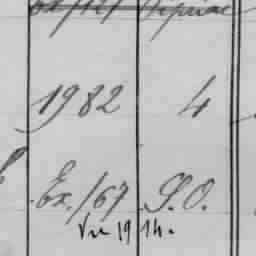 1982 4
Ex./67 S.O.
Vu 1914.